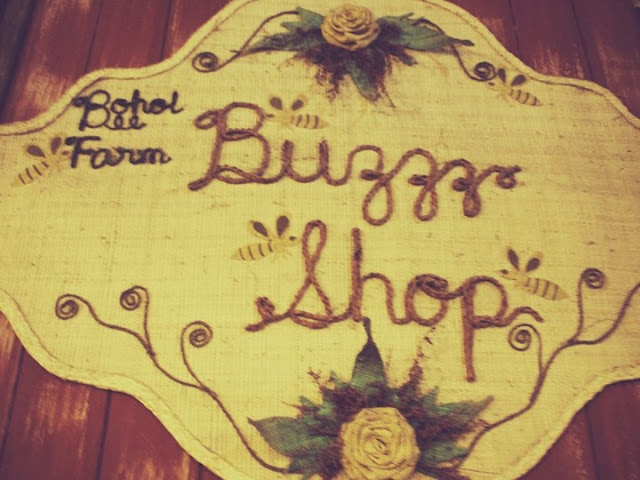 Bohol
Bee
Farm
Buzzz
Shop